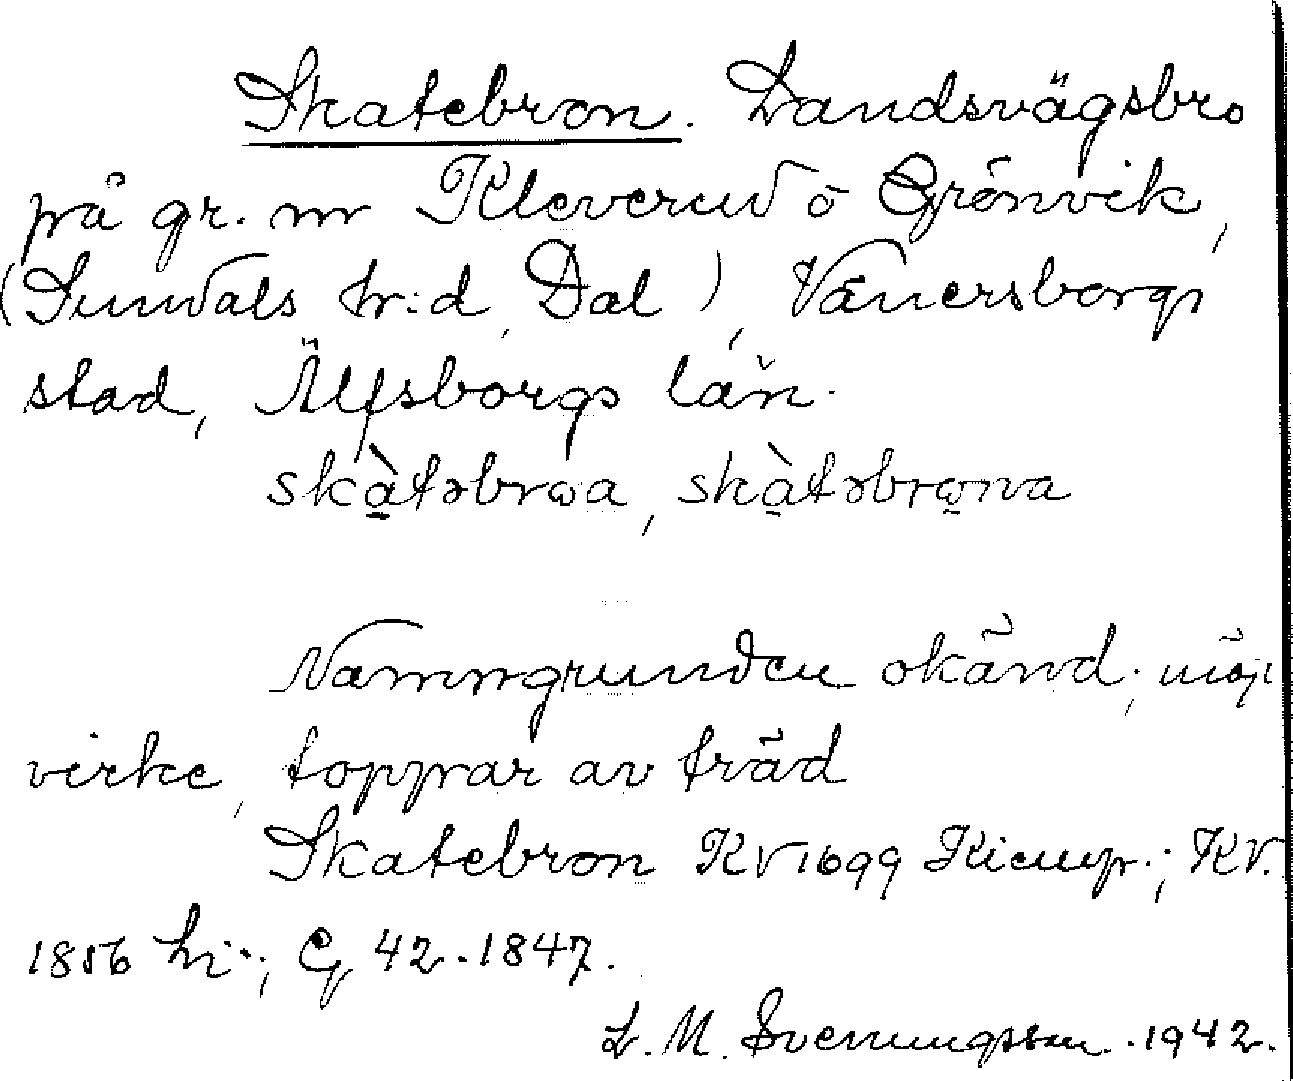 Skatebron. Landsvägsbro
på gr. m Kleverud o Grönvik,
(Sundals hr:d, Dal), Vänersborgs
stad, Älfsborgs län.
skà̱təbrωa, skà̱təbrω̱na
Namngrunden okänd; möjl
virke, toppar av träd
Skatebron KV 1699 Kiemp.; KV.
1856 Li..; G 42.1847.
L. M. Svenungsson. 1942.